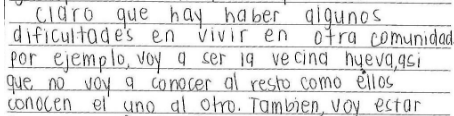 claro que hay haber algunos
dificultades en vivir en otra comunidad
por ejemplo, voy a ser la vecina nueva, asi
que no voy a conocer al resto como ellos
conocen el uno al otro. Tambien, voy estar